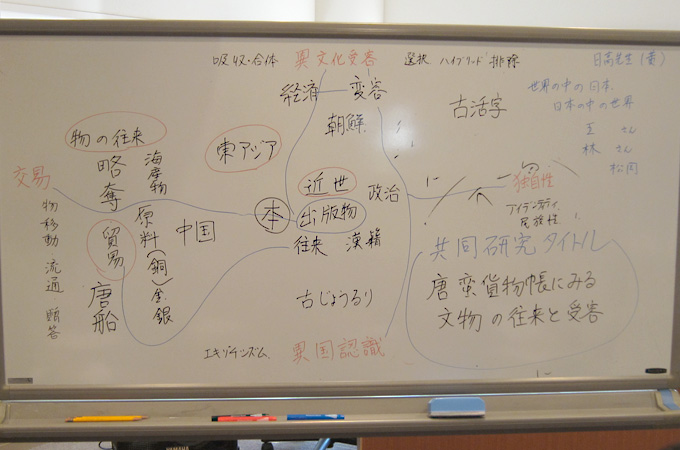 吸収・合体 異文化受容 選択 ハイブリッド 排除
日高先生(黄)
世界の中の日本
日本の中の世界
王 さん
林 さん
松岡
経済 変容
朝鮮
古活字
物の往来
東アジア
交易
略奪
海産物
近世
政治
独自性
アイデンティティ
民族性
本
出版物
物移動 流通 贈答
貿易
原料(銅)金銀
中国
往来 漢籍
唐船
古じょうるり
エキゾチシズム
異国認識
共同研究タイトル
唐蛮貨物帳にみる
文物の往来と受容